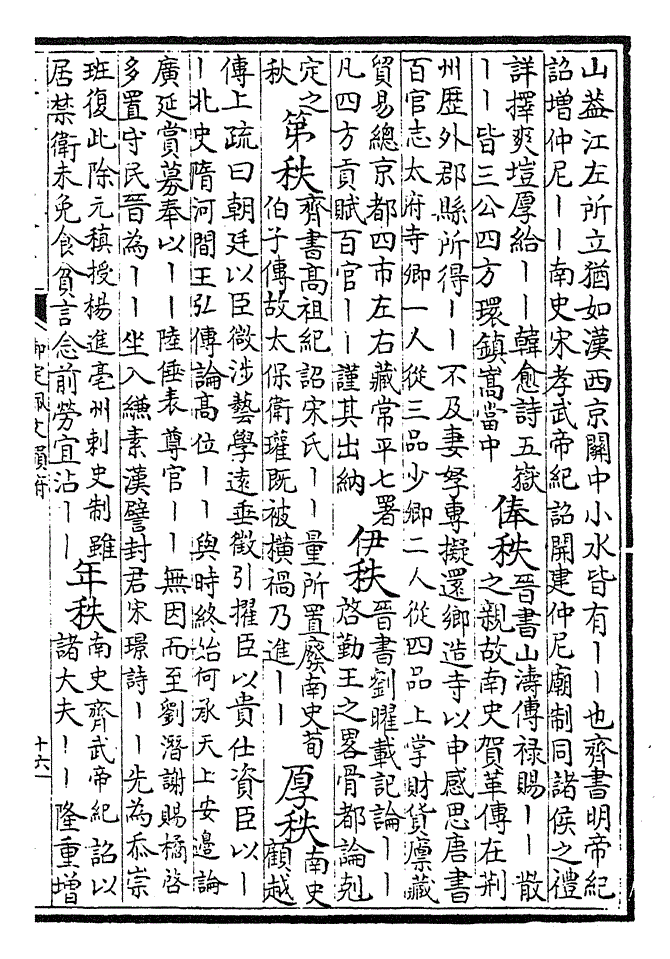 山葢江左所立猶如漢西京關中小水皆有丨丨也齊書明帝紀
詔增仲尼丨丨南史宋孝武帝紀詔開建仲尼廟制同諸侯之禮
詳擇爽塏厚給丨丨韓愈詩五嶽
丨丨皆三公四方環鎮嵩當中
俸秩
晉書山濤傳禄賜丨丨散
之親故南史賀革傳在荆
州歴外郡縣所得丨丨不及妻孥專擬還鄉造寺以申感思唐書
百官志太府寺卿一人從三品少卿二人從四品上掌財貨廩藏
貿易總京都四市左右藏常平七署
凡四方貢賦百官丨丨謹其出納
伊秩
晉書劉曜載記論丨丨
啓勤王之畧骨都論剋
定之
秋
第秩
齊書高祖紀詔宋氏丨丨量所置廢南史荀
伯子傳故太保衛瓘既被横禍乃進丨丨
厚秩
南史
顧越
傳上疏曰朝廷以臣微涉藝學遠垂徵引擢臣以貴仕資臣以丨
丨北史隋河間王弘傳論高位丨丨與時終始何承天上安邊論
廣延賞募奉以丨丨陸倕表尊官丨丨無因而至劉潛謝賜橘啓
多置守民晉為丨丨坐入縑素漢譬封君宋璟詩丨丨先為忝崇
班復此除元稹授楊進亳州刺史制雖
居禁衛未免食貧言念前勞宜沾丨丨
年秩
南史齊武帝紀詔以
諸大夫丨丨隆重增
御定佩文韻府
十六